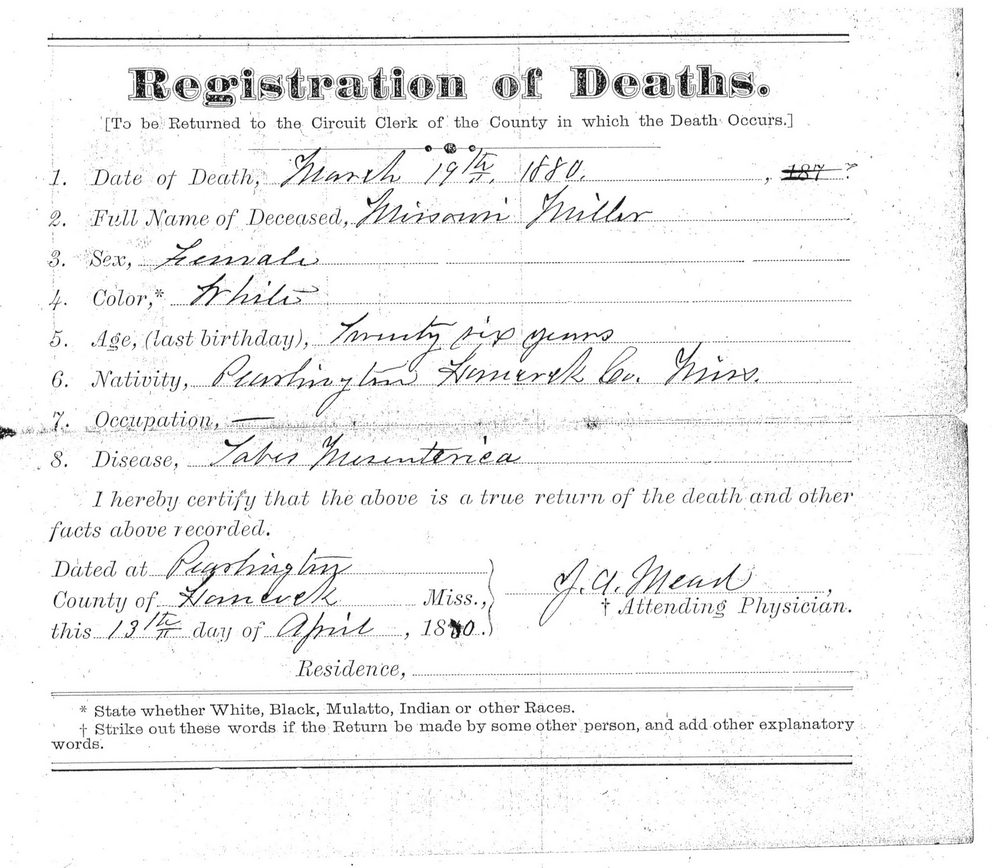 Registration of Deaths.
[To be Returned to the Circuit Clerk of the County in which the Death Occurs.]
1. Date of Death, March 19th, 1880. , 187 .
2. Full Name of Deceased, Missouri Miller
3. Sex, Female
4. Color,* White
5. Age, (last birthday), Twenty six years
6. Nativity, Pearlington Hancock Co. Miss.
7. Occupation, —
8. Disease, Tabes Mesenterica
I hereby certify that the above is a true return of the death and other
facts above recorded.
Dated at Pearlington
County of Hancock Miss.,
J. A. Mead ,
† Attending Physician.
this 13th day of April , 1880.
Residence,
* State whether White, Black, Mulatto, Indian or other Races.
† Strike out these words if the Return be made by some other person, and add other explanatory
words.